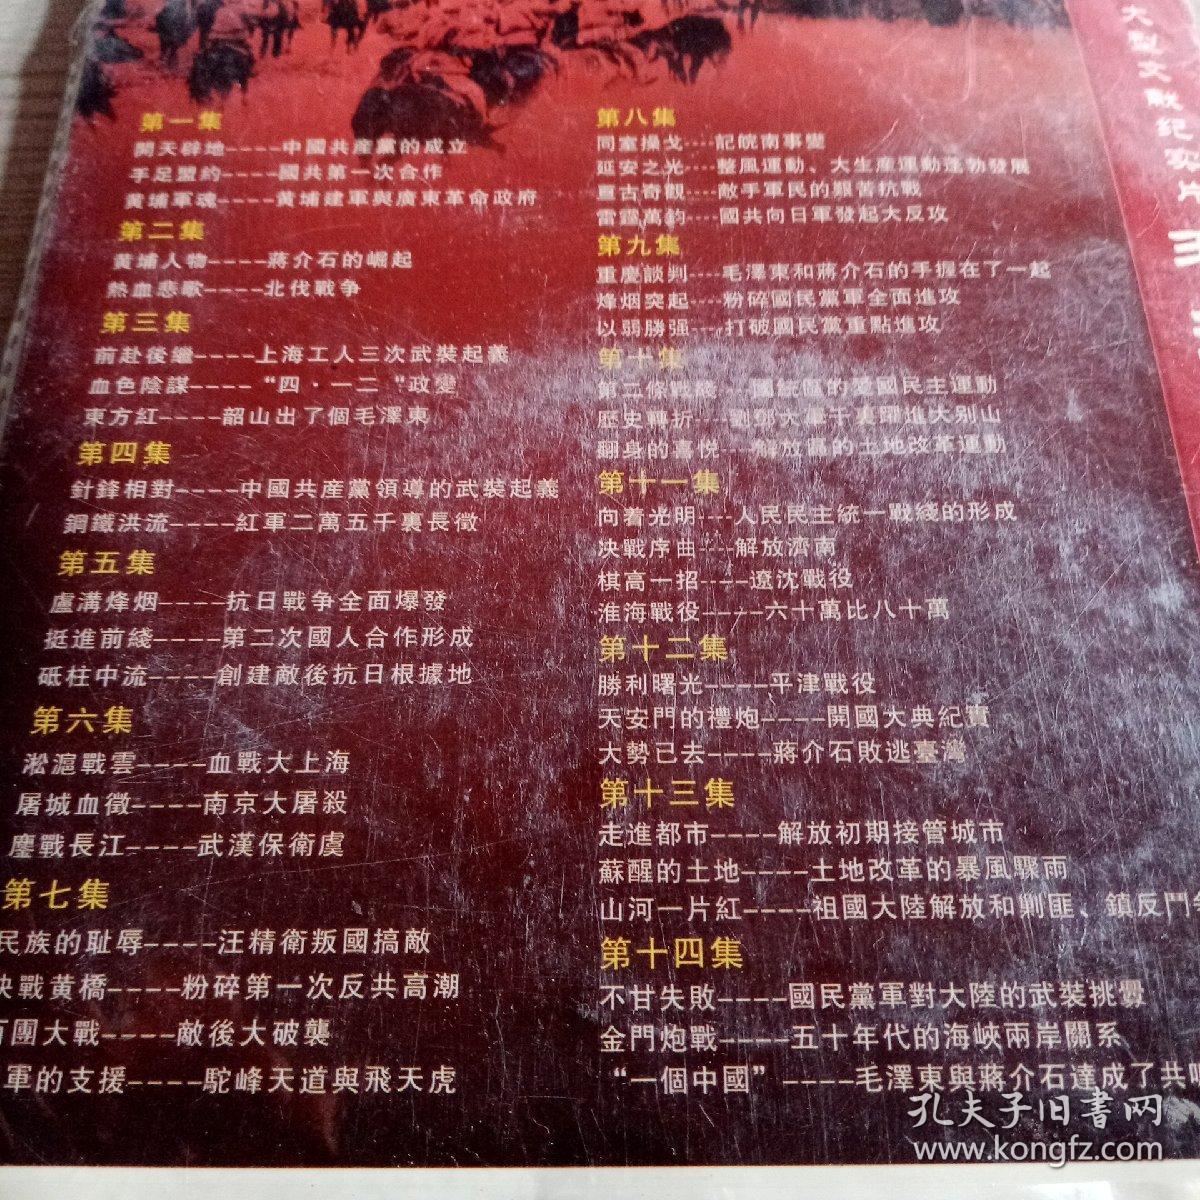 第一集
開天辟地----中國共産黨的成立
手足盟約----國共第一次合作
黄埔軍魂----黄埔建軍與廣東革命政府
第二集
黄埔人物----蔣介石的崛起
熱血悲歌----北伐戰争
第三集
前赴後繼----上海工人三次武裝起義
血色陰謀----“四·一二“政變
東方紅----韶山出了個毛澤東
第四集
針鋒相對----中國共産黨領導的武裝起義
鋼鐵洪流----紅軍二萬五千裏長徵
第五集
盧溝烽烟----抗日戰争全面爆發
挺進前綫----第二次國人合作形成
砥柱中流----創建敵後抗日根據地
第六集
淞滬戰雲----血戰大上海
屠城血徵----南京大屠殺
鏖戰長江----武漢保衛虞
第七集
民族的耻辱----汪精衛叛國搞敵
决戰黄橋----粉碎第一次反共高潮
百團大戰----敵後大破襲
軍的支援----駝峰天道與飛天虎
第八集
同室操戈----記皖南事變
延安之光----整風運動、大生産運動蓬勃發展
亘古奇觀----敵手軍民的艱苦抗戰
雷霆萬鈞----國共向日軍發起大反攻
第九集
重慶談判----毛澤東和蔣介石的手握在了一起
烽烟突起----粉碎國民黨軍全面進攻
以弱勝强----打破國民黨重點進攻
第十集
第二條戰綫----國統區的愛國民主運動
歷史轉折----劉鄧大軍千裏躍進大别山
翻身的喜悦----解放區的土地改革運動
第十一集
向着光明----人民民主統一戰綫的形成
决戰序曲----解放濟南
棋高一招----遼沈戰役
淮海戰役----六十萬比八十萬
第十二集
勝利曙光----平津戰役
天安門的禮炮----開國大典紀實
大勢已去----蔣介石敗逃臺灣
第十三集
走進都市----解放初期接管城市
蘇醒的土地----土地改革的暴風驟雨
山河一片紅----祖國大陸解放和剿匪、鎮反鬥争
第十四集
不甘失敗----國民黨軍對大陸的武裝挑釁
金門炮戰----五十年代的海峽兩岸關系
“一個中國”----毛澤東與蔣介石達成了共
大型文獻纪实片
孔夫子旧書网
www.kongfz.com